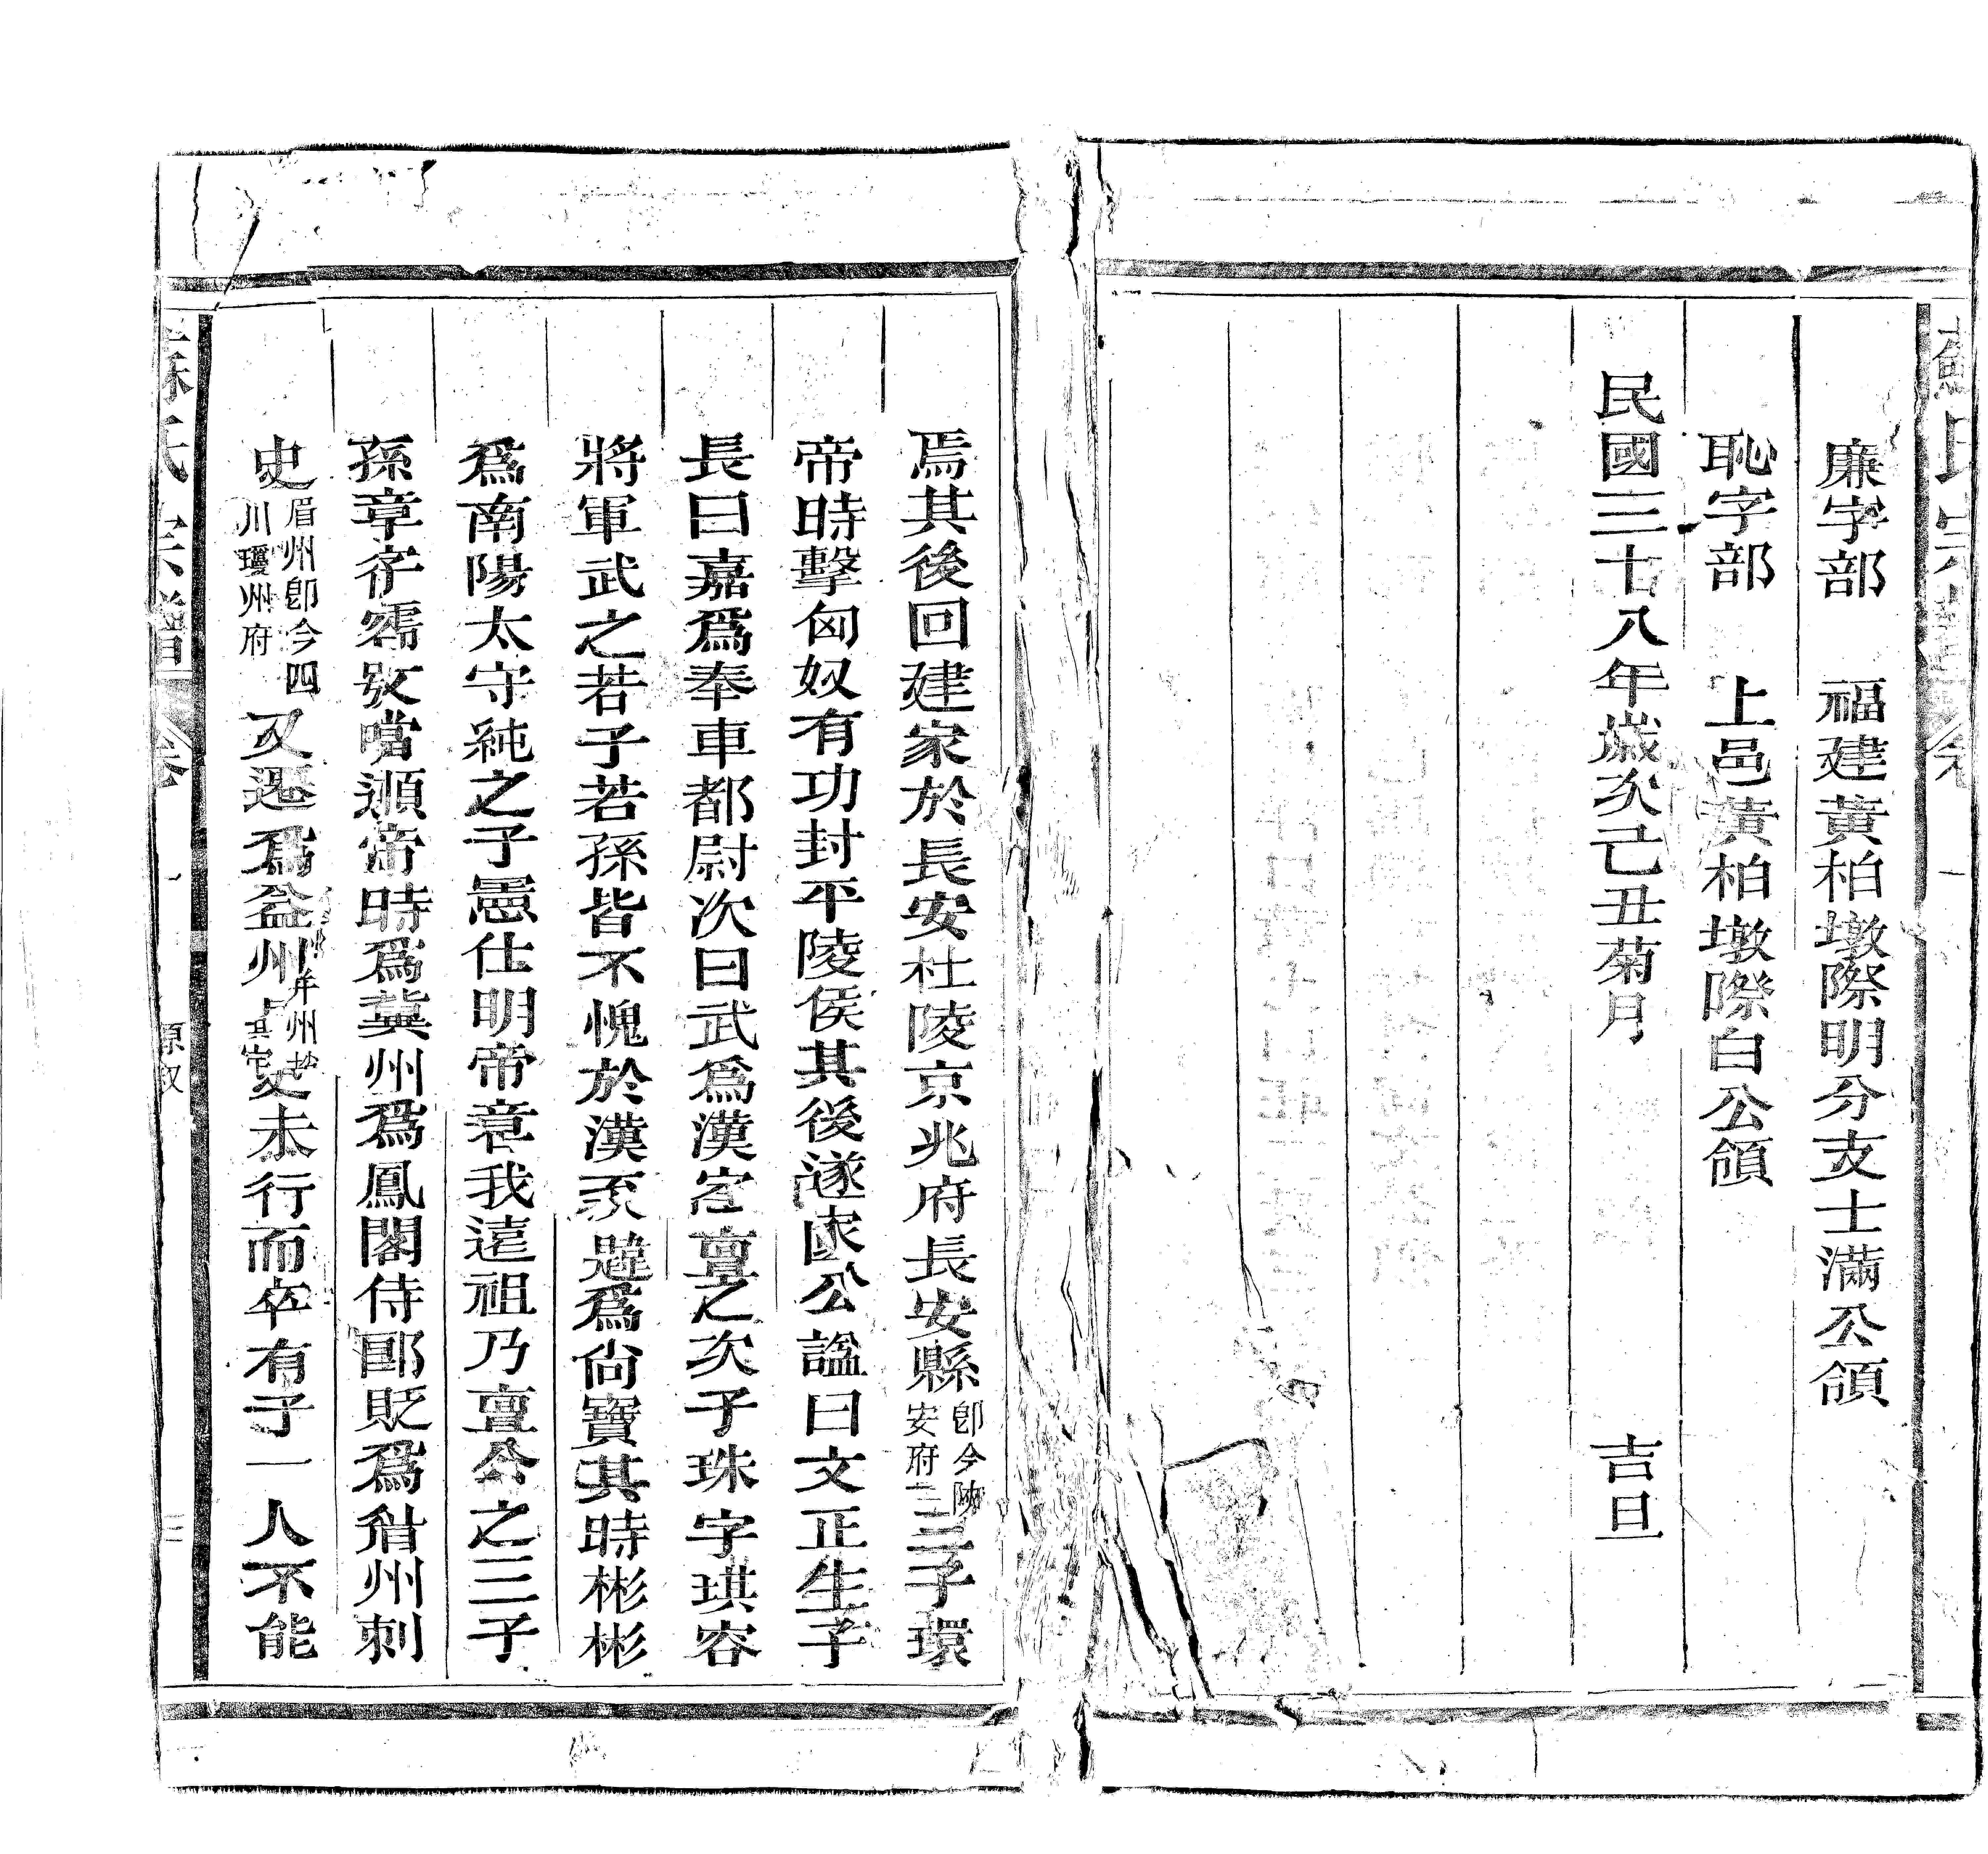 蘇氏宗譜 卷一
廉字部 福建黃柏墩際明分支士滿公領
恥字部 上邑黃柏墩際白公領
民國三十八年歲次己丑菊月 吉旦
焉其後回建家於長安杜陵京兆府長安縣卽今陝安府三子環
帝時擊匈奴有功封平陵侯其後遂公謚曰文正生子
長曰嘉爲奉車都尉次曰武爲漢之次子珠字琪容
將軍武之若子若孫皆不愧於漢爲尚寶其時彬彬
爲南陽太守純之子仕明帝章我遠祖乃公之三子
孫章字帝時爲冀州爲鳳閣侍郎貶爲州刺
史眉州卽今四川瓊州府又遷爲益州史未行而卒有子一人不能
蘇氏宗譜 卷一 原叙 三